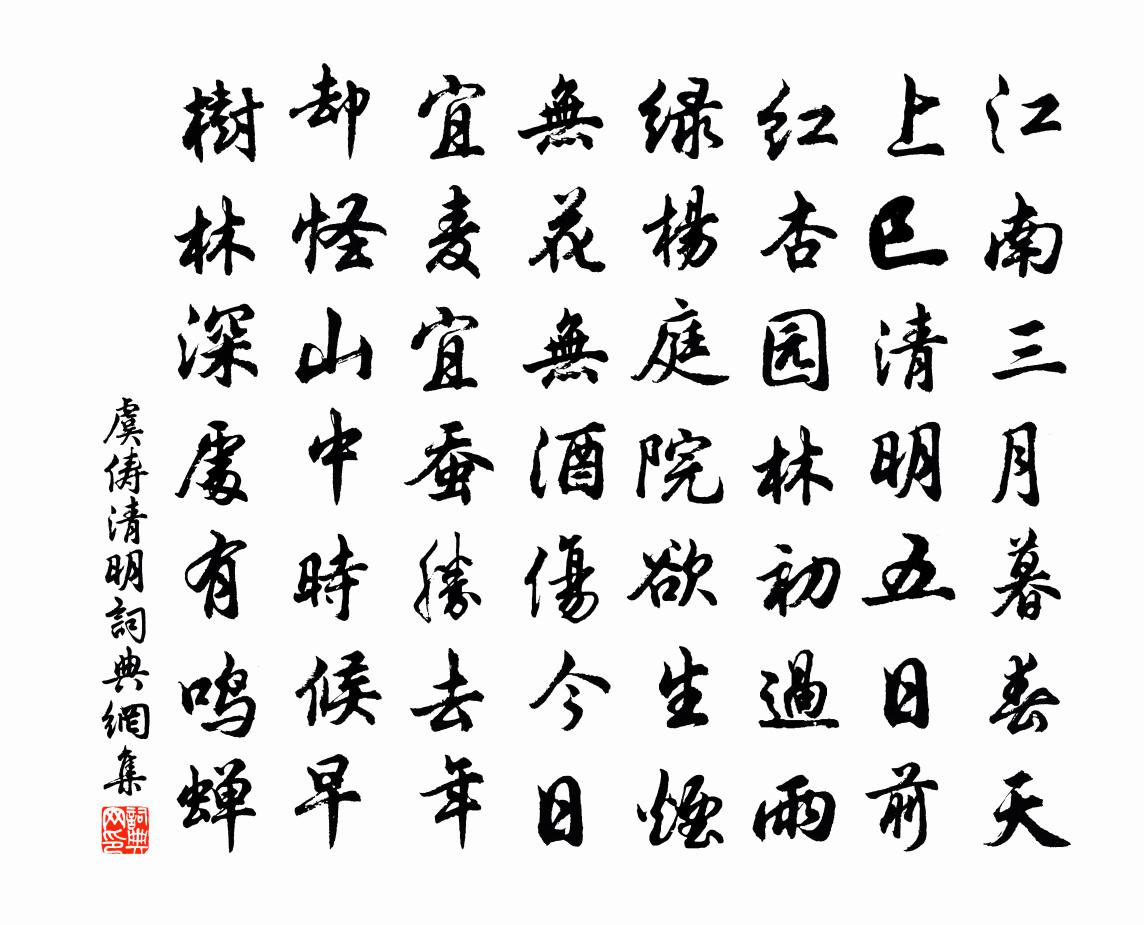 江南三月暮春天
上巳清明五日前
红杏园林初過雨
緑楊庭院欲生煙
無花無酒傷今日
宜麦宜蚕勝去年
却怪山中時候早
樹林深處有鸣蝉
虞俦清明詞典網集
詞典
网印